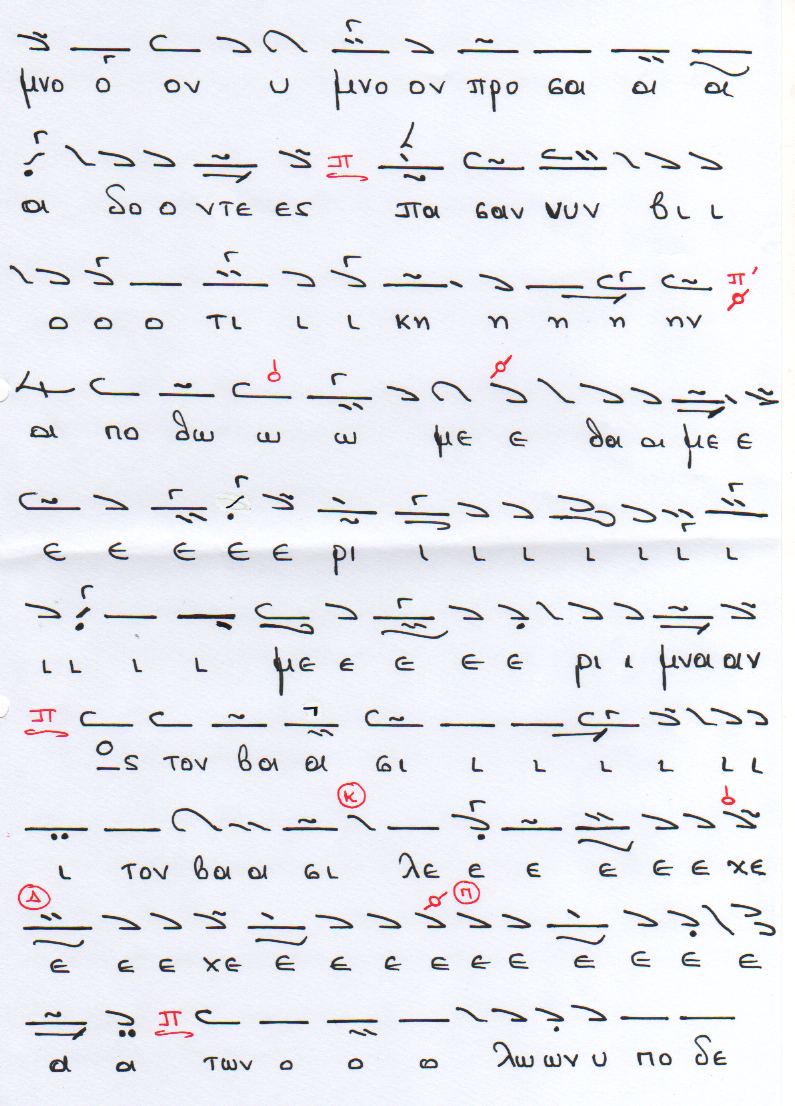 μνο ο ον υ μνο ον προ σαι αι αι
αι δο ο ντε ες πα σαν νυν βι ι
ο ο ο τι ι ι κη η η η ην
α πο θω ω ω με ε θαι αι με ε
ε ε ε ε ε ρι ι ι ι ι ι ι ι
ι ι ι ι με ε ε ε ε ρι ι μναι αν
ος τον βαι αι σι ι ι ι ι ι ι
ι τον βαι αι σι λε ε ε ε ε ε χε
ε ε ε χε ε ε ε ε ε ε ε ε ε ε
α α των ο ο ο λω ων υ πο δε